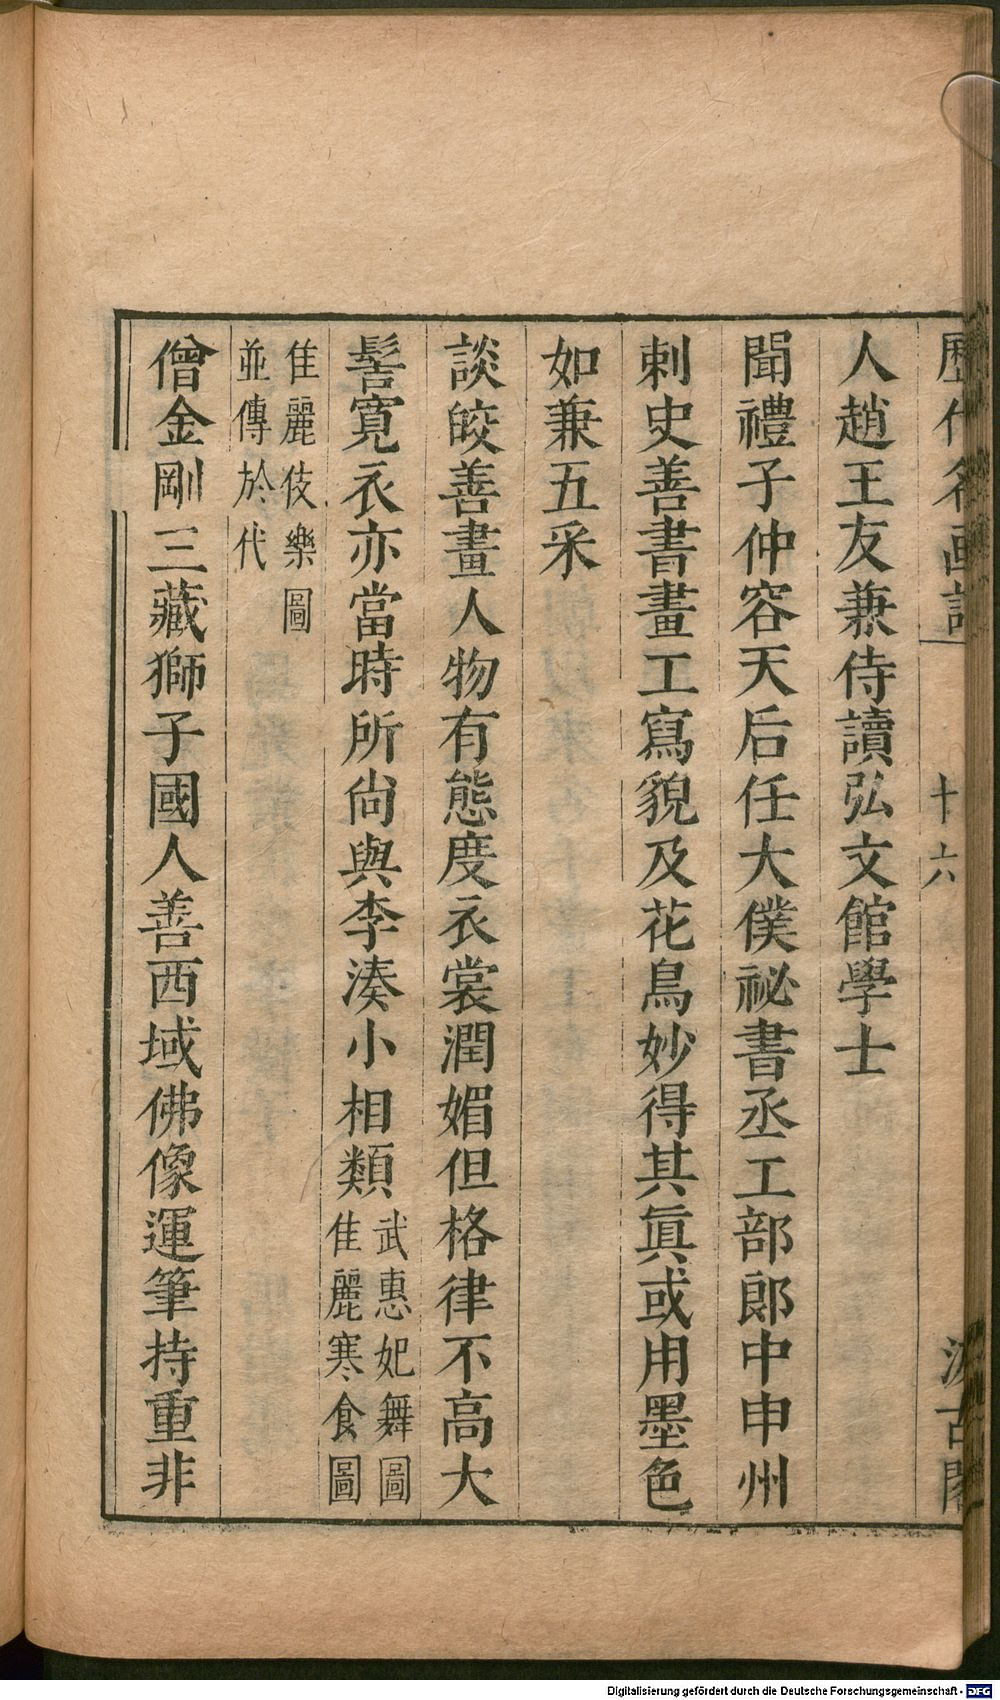 歷代名画記 十六 汲古閣
人趙王友兼侍讀弘文館學士
聞禮子仲容天后任大僕祕書丞工部郎中申州
刺史善書畫工寫貌及花鳥妙得其眞或用墨色
如兼五采
談皎善畫人物有態度衣裳潤媚但格律不高大
髻寬衣亦當時所尙與李湊小相類武惠妃舞圖
佳麗寒食圖
佳麗伎樂圖
並傳於代
僧金剛三藏獅子國人善西域佛像運筆持重非
Digitalisierung gefördert durch die Deutsche Forschungsgemeinschaft - DFG